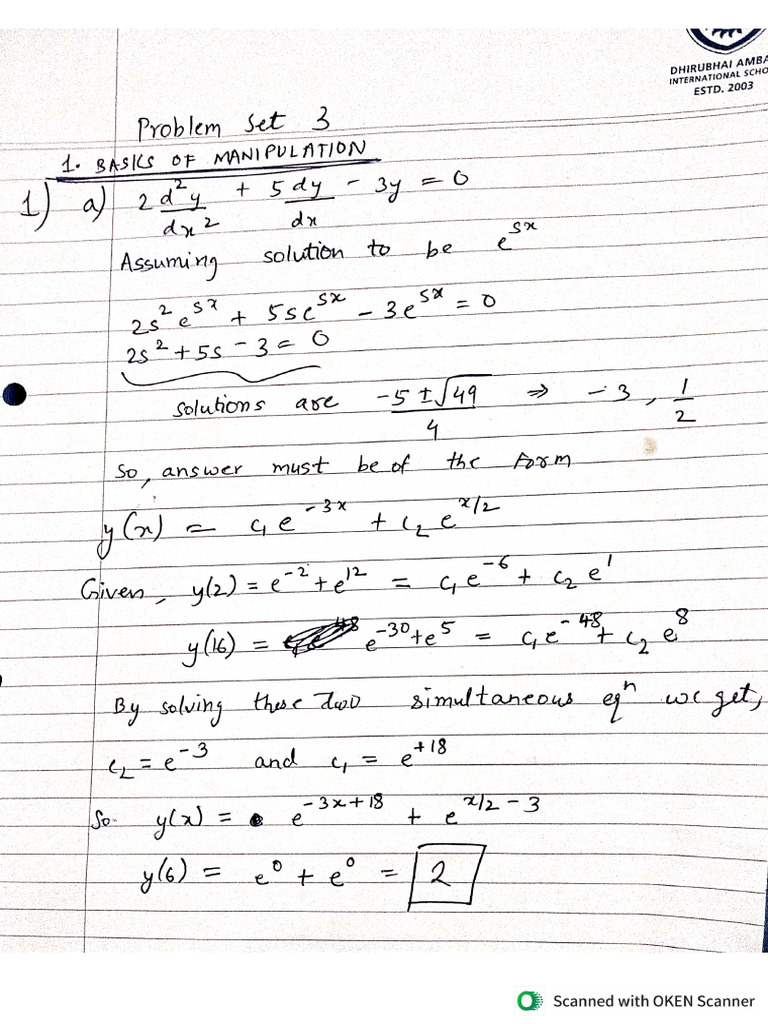 DHIRUBHAI AMBA
INTERNATIONAL SCHO
ESTD. 2003
Problem Set 3
1. BASICS OF MANIPULATION
1) a) 2 d²y/dx² + 5 dy/dx - 3y = 0
Assuming solution to be e^sx
2s²e^sx + 5se^sx - 3e^sx = 0
2s² + 5s - 3 = 0
solutions are (-5 ± √49)/4 ⇒ -3, 1/2
So, answer must be of the form
y(x) = c₁e^-3x + c₂e^x/2
Given, y(2) = e^-2 + e^12 = c₁e^-6 + c₂e^1
y(16) = e^-30 + e^5 = c₁e^-48 + c₂e^8
By solving these two simultaneous eqⁿ we get,
c₂ = e^-3 and c₁ = e^+18
So. y(x) = e^-3x+18 + e^x/2-3
y(6) = e^0 + e^0 = 2
Scanned with OKEN Scanner